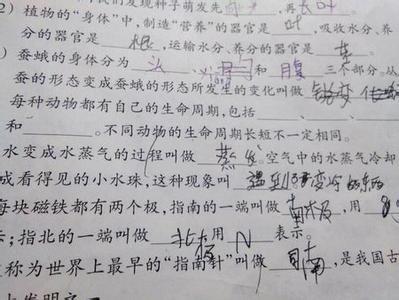 我们发现种子萌发先____,再长
)植物的“身体”中,制造“营养”的器官是 叶 ,吸收水分、养
分的器官是 根 ,运输水分、养分的器官是 茎 。
)蚕蛾的身体分为 头 、 和 腹 三个部分。从
蚕的形态变成蚕蛾的形态所发生的变化叫做
每种动物都有自己的生命周期,包括____、____、
和____。不同动物的生命周期长短不一定相同。
水变成水蒸气的过程叫做 蒸发 。空气中的水蒸气冷却
成看得见的小水珠,这种现象叫 变冷的东西
每块磁铁都有两个极,指南的一端叫做 南极 ,用
示;指北的一端叫做 北极 用 N 表示。
称为世界上最早的“指南针”叫做 司南 ,是我国古
发明之一